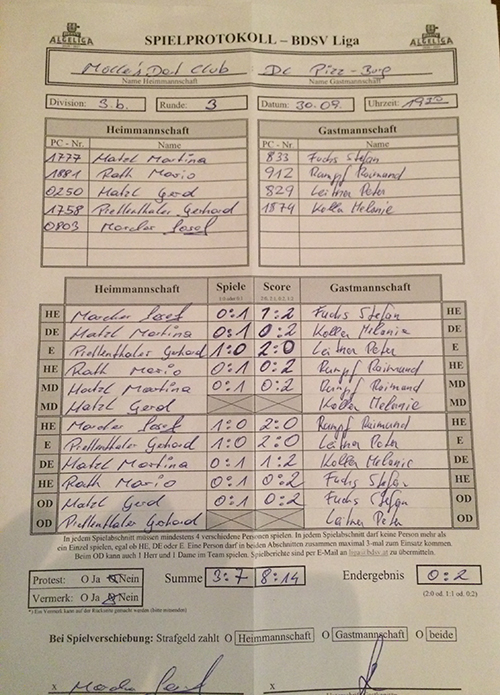 ALGELIGA SPIELPROTOKOLL – BDSV Liga ALGELIGA
Molle's Dart Club DC Pizz-Burg
Name Heimmannschaft Name Gastmannschaft
Division: 3.b. Runde: 3 Datum: 30.09. Uhrzeit: 19
Heimmannschaft Gastmannschaft
PC - Nr. Name PC - Nr. Name
1777 Hatzl Martina 833 Fuchs Stefan
1881 Rath Mario 912 Rumpf Raimund
0250 Hatzl Gerd 829 Leitner Peter
1758 Piellenthaler Gerhard 1874 Koller Melanie
0803 Marcher Josef
Heimmannschaft Spiele Score Gastmannschaft
1:0 oder 0:1 2:0, 2:1, 0:2, 1:2
HE Marcher Josef 0:1 1:2 Fuchs Stefan HE
DE Hatzl Martina 0:1 0:2 Koller Melanie DE
E Piellenthaler Gerhard 1:0 2:0 Leitner Peter E
HE Rath Mario 0:1 0:2 Rumpf Raimund HE
MD Hatzl Martina 0:1 0:2 Rumpf Raimund MD
MD Hatzl Gerd Koller Melanie MD
HE Marcher Josef 1:0 2:0 Rumpf Raimund HE
E Piellenthaler Gerhard 1:0 2:0 Leitner Peter E
DE Hatzl Martina 0:1 1:2 Koller Melanie DE
HE Rath Mario 0:1 0:2 Fuchs Stefan HE
OD Hatzl Gerd 0:1 0:2 Fuchs Stefan OD
OD Piellenthaler Gerhard Leitner Peter OD
In jedem Spielabschnitt müssen mindestens 4 verschiedene Personen spielen. In jedem Spielabschnitt darf keine Person mehr als
ein Einzel spielen, egal ob HE, DE oder E. Eine Person darf in beiden Abschnitten zusammen maximal 3-mal zum Einsatz kommen.
Beim OD kann auch 1 Herr und 1 Dame im Team spielen. Spielberichte sind per E-Mail an liga@bdsv.at zu übermitteln.
Protest: O Ja O Nein Summe 3:7 8:14 Endergebnis 0:2
Vermerk: O Ja O Nein (2:0 od. 1:1 od. 0:2)
*) Ein Vermerk kann auf der Rückseite gemacht werden (bitte ankreuzen)
Bei Spielverschiebung: Strafgeld zahlt O Heimmannschaft O Gastmannschaft O beide
x Marcher Josef x